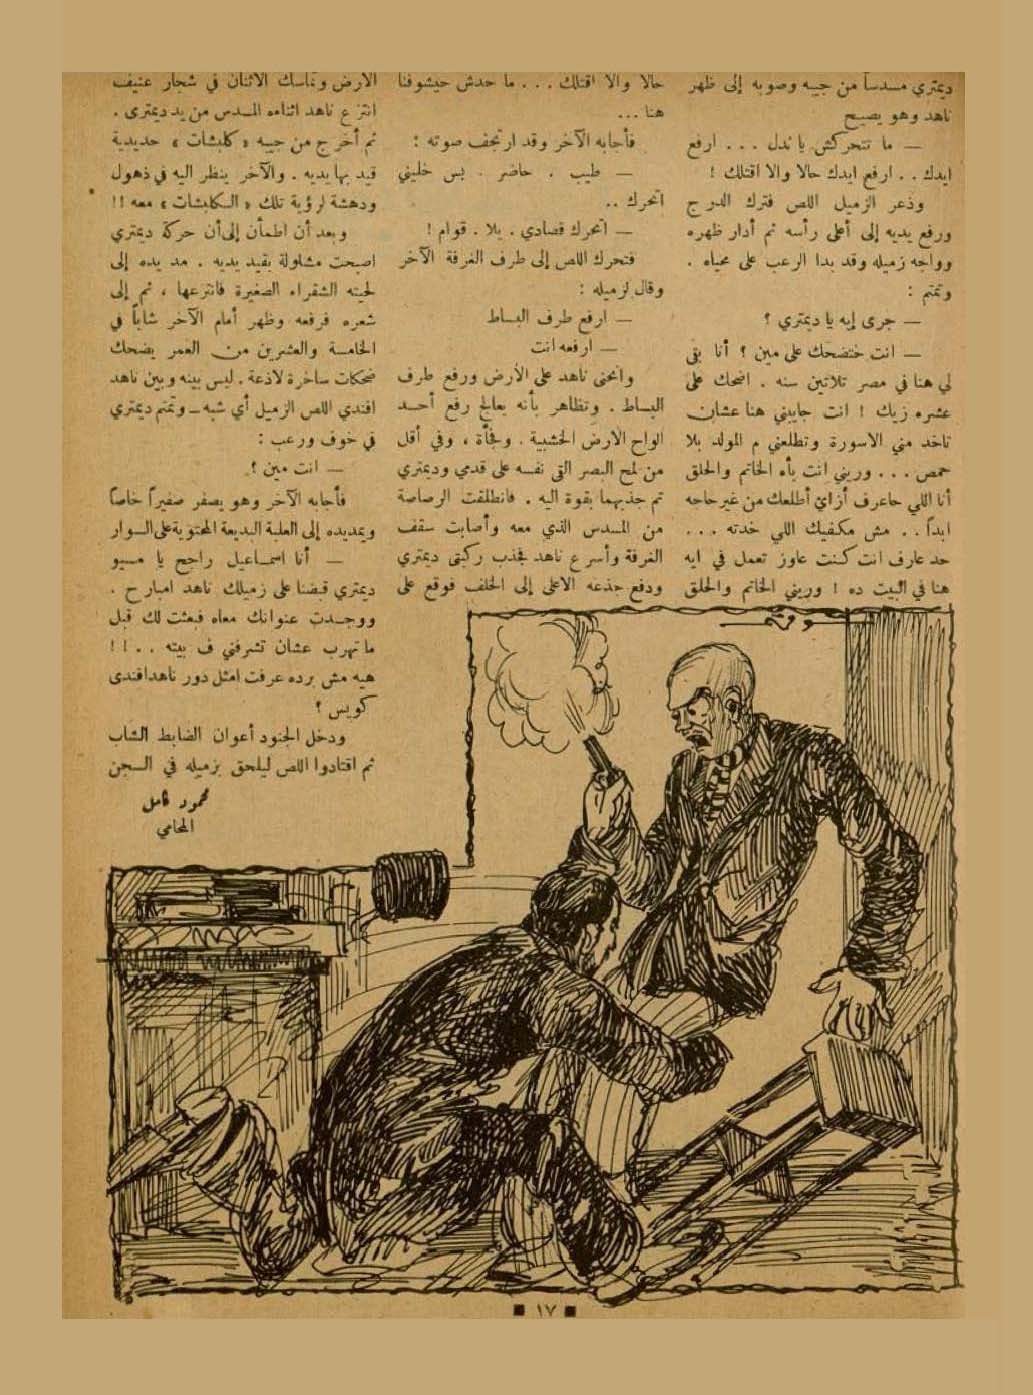 ديمتري مسدساً من جيبه وصوبه إلى ظهر
ناهد وهو يصيح
— ما تتحركش يا ندل ... ارفع
ايدك .. ارفع ايدك حالا والا اقتلك !
وذعر الزميل اللص فترك الدرج
ورفع يديه إلى أعلى رأسه ثم أدار ظهره
وواجه زميله وقد بدا الرعب على محياه .
وتمتم :
— جرى إيه يا ديمتري ؟
— انت حتضحك على مين ؟ أنا بقى
لي هنا في مصر تلاتين سنه . اضحك على
عشره زيك ! انت جايبني هنا عشان
تاخد مني الاسورة وتطلعني م المولد بلا
حمص ... وريني انت بأه الخاتم والحلق
أنا اللي حاعرف أزاي أطلعك من غير حاجه
ابداً .. مش مكفيك اللي خدته ...
حد عارف انت كنت عاوز تعمل في ايه
هنا في البيت ده ! وريني الخاتم والحلق
حالا والا اقتلك ... ما حدش حيشوفنا
هنا ...
فأجابه الآخر وقد ارتجف صوته :
— طيب . حاضر . بس خليني
اتحرك ..
— اتحرك قصادي . يلا . قوام !
فتحرك اللص إلى طرف الغرفة الآخر
وقال لزميله :
— ارفع طرف البساط
— ارفعه انت
وانحنى ناهد على الأرض ورفع طرف
البساط . وتظاهر بأنه يعالج رفع أحد
الواح الارض الخشبية . وفجأة ، وفي أقل
من لمح البصر التى نفسه على قدمي وديمتري
ثم جذبهما بقوة اليه . فانطلقت الرصاصة
من المسدس الذي معه وأصابت سقف
الغرفة وأسرع ناهد فجذب ركبتى ديمتري
ودفع جذعه الاعلى إلى الخلف فوقع على
الارض وتماسك الاثنان في شجار عنيف
انتزع ناهد اثناءه المسدس من يد ديمتري .
ثم أخرج من جيبه « كلبشات » حديدية
قيد بها يديه . والآخر ينظر اليه في ذهول
ودهشة لرؤية تلك « الكلبشات » معه !!
وبعد أن اطمأن إلى أن حركة ديمتري
اصبحت مشلولة بقيد يديه . مد يده إلى
لحيته الشقراء الصغيرة فانتزعها ، ثم إلى
شعره فرفعه وظهر أمام الآخر شاباً في
الخامسة والعشرين من العمر يضحك
ضحكات ساخرة لاذعة . ليس بينه وبين ناهد
افندي اللص الزميل أي شبه ـ وتمتم ديمتري
في خوف ورعب :
— انت مين ؟
فأجابه الآخر وهو يصفر صفيراً خاصاً
ويمد يده إلى العلبة البديعة المحتوية على السوار
— أنا اسماعيل راجح يا مسيو
ديمتري قبضنا على زميلك ناهد امبارح .
ووجدت عنوانك معاه فبعثت لك قبل
ما تهرب عشان تشرفني ف بيته .. !!
هيه مش برده عرفت امثل دور ناهد افندى
كويس ؟
ودخل الجنود أعوان الضابط الشاب
ثم اقتادوا اللص ليلحق بزميله في السجن
محمود كامل
المحامي
١٧